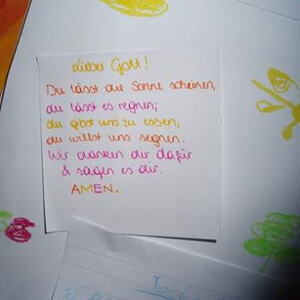 Lieber Gott!
Du lässt die Sonne scheinen,
du lässt es regnen;
du gibst uns zu essen,
du willst uns segnen.
Wir danken dir dafür
& sagen es dir.
AMEN.